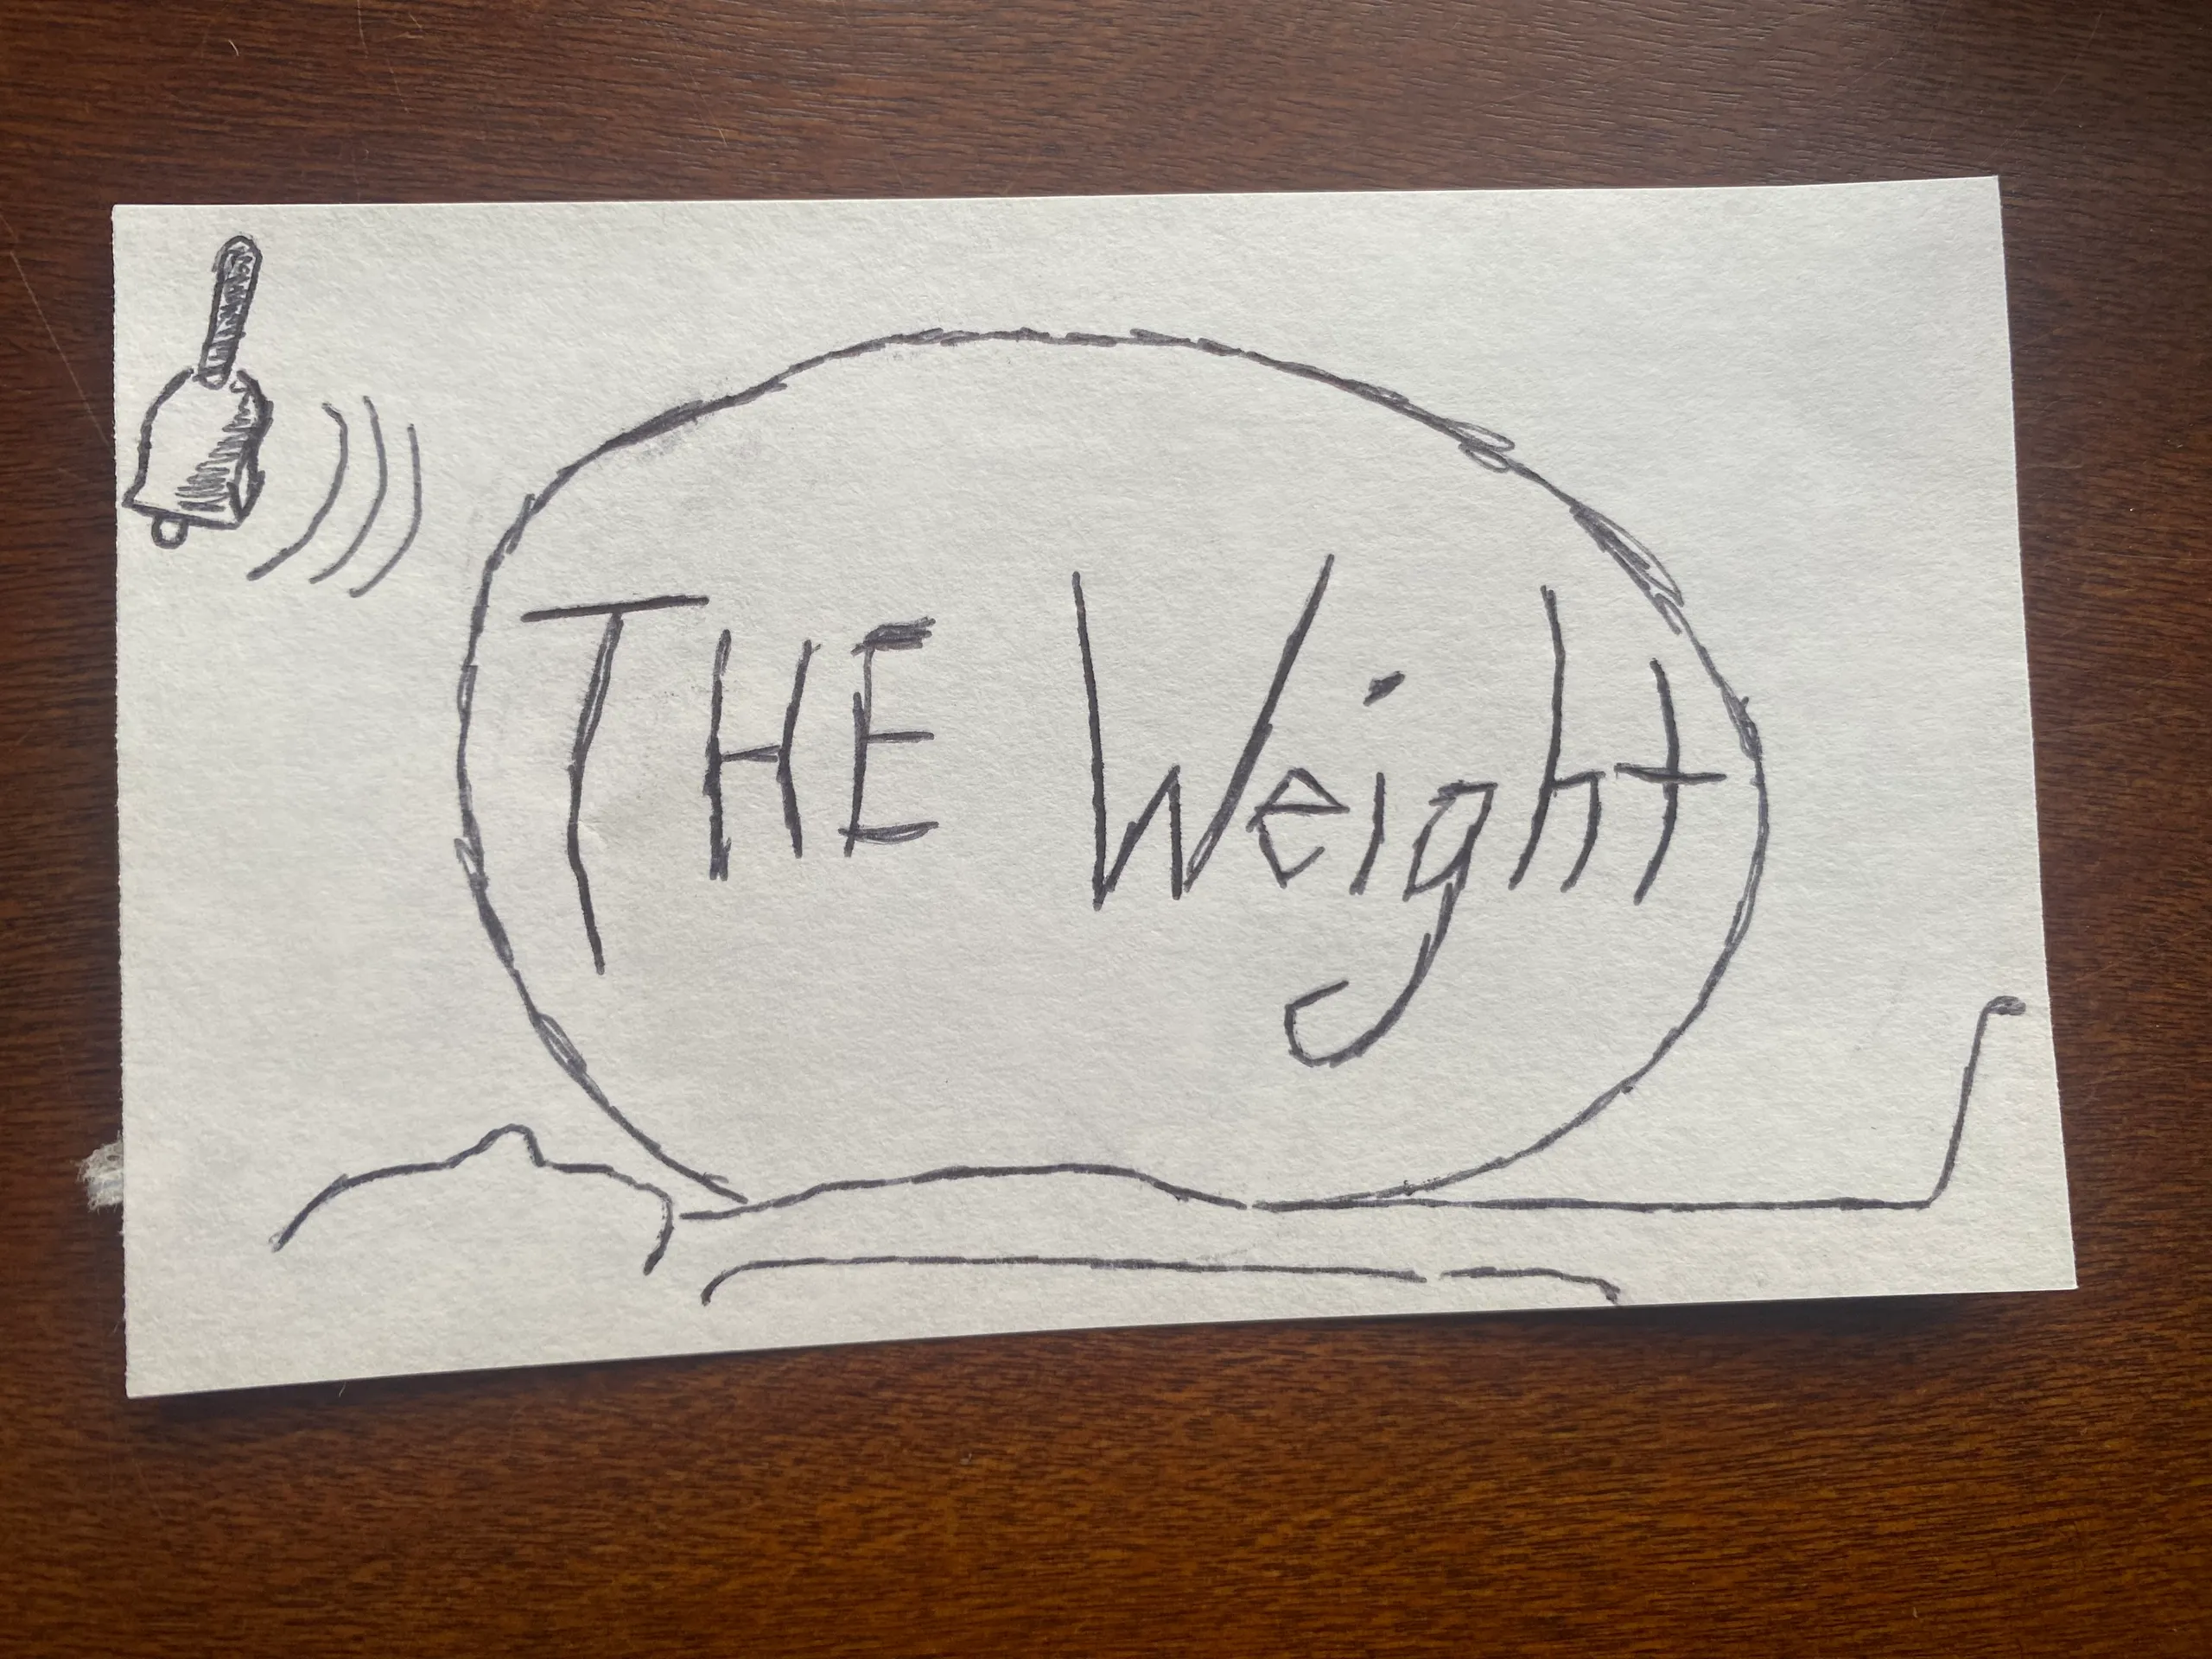 THE Weight